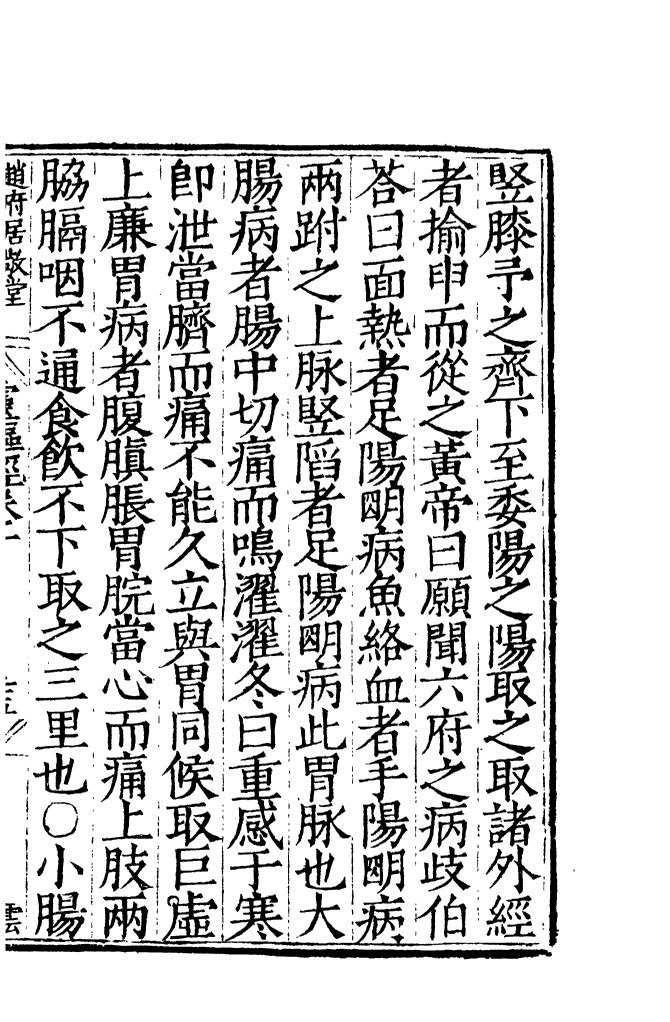 竪膝予之齊下至委陽之陽取之取諸外經
者揄申而從之黃帝曰願聞六府之病歧伯
荅曰面熱者足陽明病魚絡血者手陽明病
兩跗之上脉竪䧟者足陽明病此胃脉也大
腸病者腸中切痛而鳴濯濯冬曰重感于寒
卽泄當臍而痛不能久立與胃同候取巨虛
上廉胃病者腹䐜脹胃脘當心而痛上肢兩
脇膈咽不通食飲不下取之三里也○小腸
趙府居敬堂